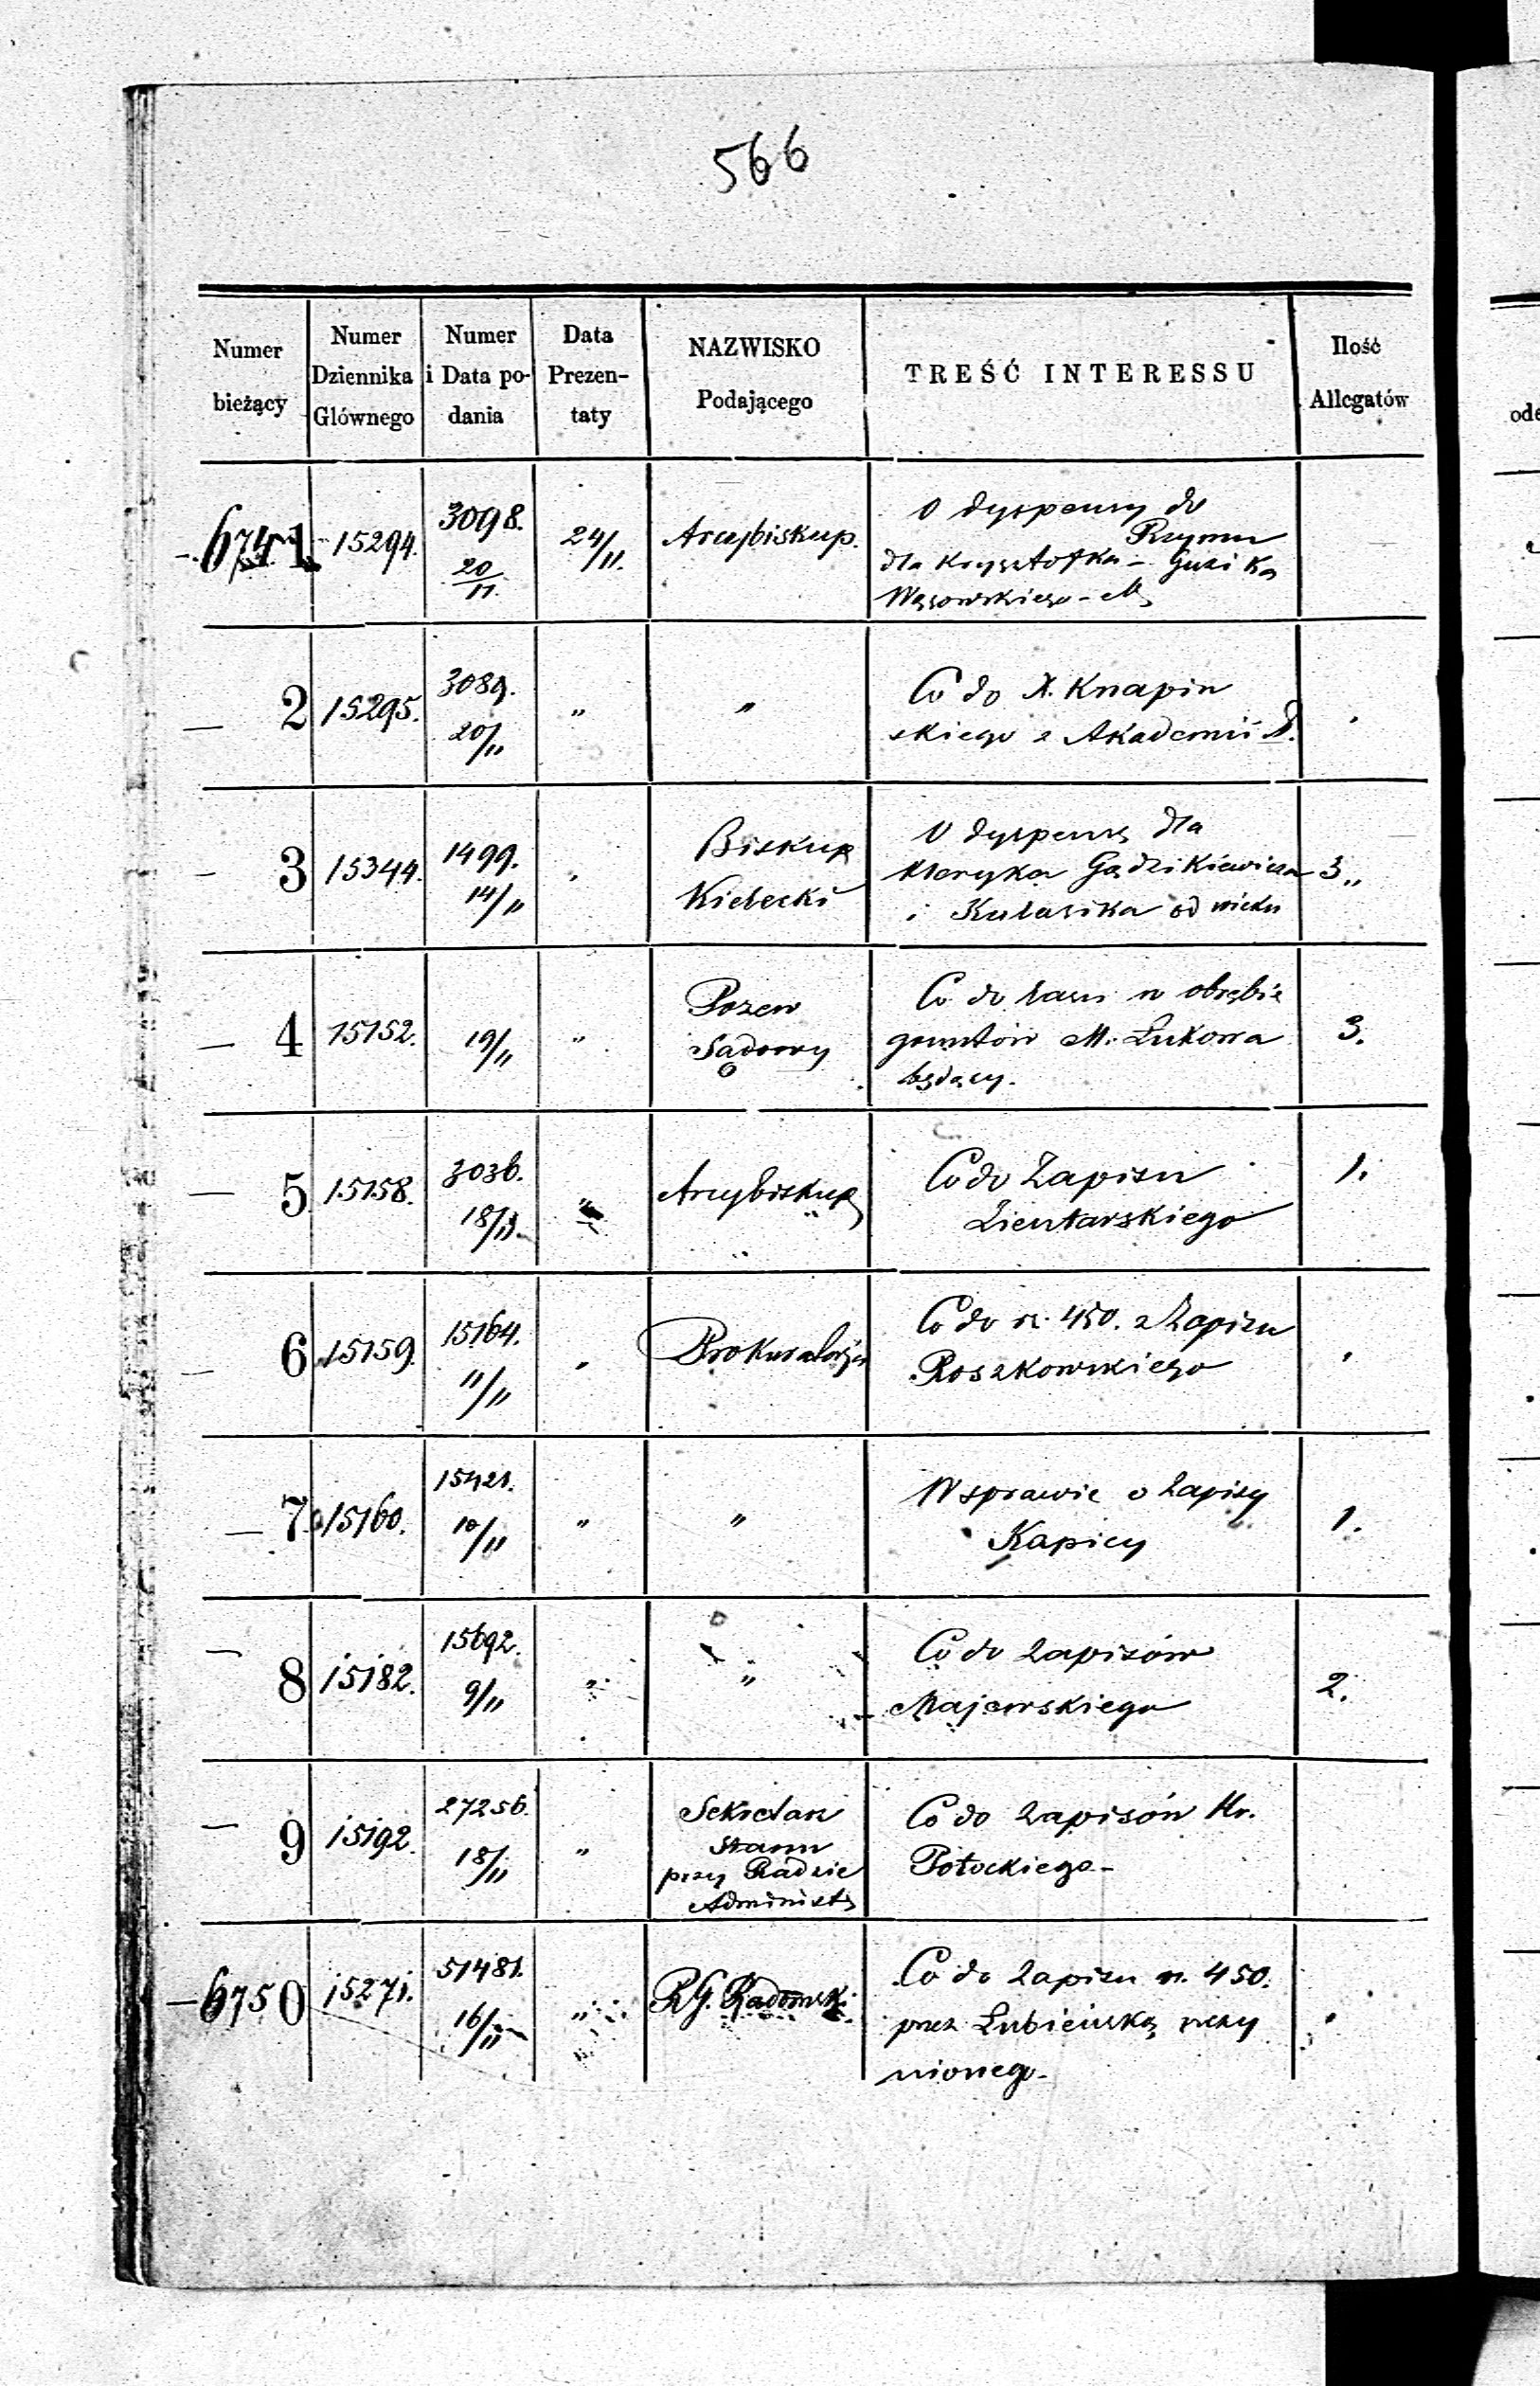 566
Numer bieżący
Numer Dziennika Głównego
Numer i Data podania
Data Prezentaty
NAZWISKO Podającego
TREŚĆ INTERESSU
Ilość Allegatów
6741 15294. 3098. 20/11. 24/11. Arcybiskup.
O dyspensy do
Rzymu
dla Krysztofka - Guzika
Wąsowskiego -
2 15295. 3089. 20/11 " "
Co do X. Knapin
skiego z Akademii D.
3 15344. 1499. 14/11 "
Biskup
Kielecki
O dyspensę dla
Kleryka Gądzikiewicza 3"
i Kulasika od wieku
4 15152. 19/11 "
Pozew
Sądowy
Co do lasu w obrębie
gruntów M. Łukowa 3.
będący.
5 15158. 3036. 18/11. " Arcybiskup
Co do Zapisu 1.
Zientarskiego
6 15159. 15164. 11/11 " Prokuratorja
Co do rs. 450. z Zapisu
Roszkowskiego
7 15160. 15421. 10/11 " "
W sprawie o Zapisy
Kapicy 1.
8 15182. 15692. 9/11 " "
Co do Zapisów
Majewskiego 2.
9 15192. 27256. 18/11 "
Sekretarz
Stanu
przy Radzie
Administ
Co do Zapisów Hr.
Potockiego -
6750 15271. 51481. 16/11 " RG. Radomsk.
Co do Zapisu rs. 450.
przez Łubieńską uczy
nionego -